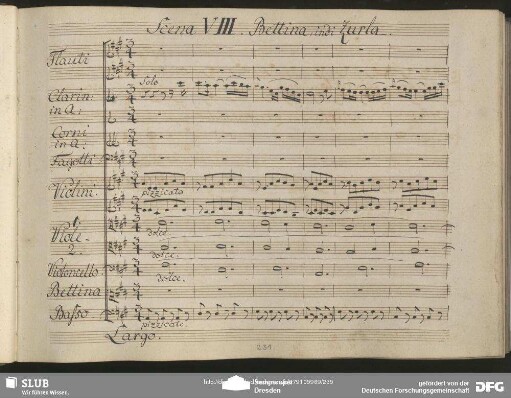 Scena VIII. Bettina indi Zurla.
Flauti
Solo
Clarin:
in A:
Corni
in A:
Fagotti
Violini.
pizzicato
1.
Viole.
2.
dolce.
dolce
Violoncello
dolce.
Bettina
Basso
pizzicato.
Largo.
231
SLUB
Wir führen Wissen.
Dresden
gefördert von der
Deutschen Forschungsgemeinschaft
DFG